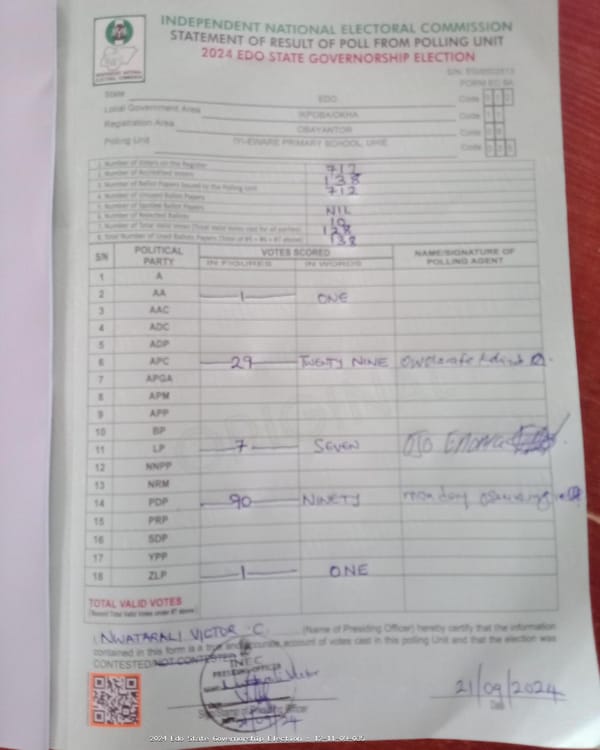 INDEPENDENT NATIONAL ELECTORAL COMMISSION
STATEMENT OF RESULT OF POLL FROM POLLING UNIT
2024 EDO STATE GOVERNORSHIP ELECTION
FORM EC 8A
State EDO Code
Local Government Area IKPOBA/OKHA Code
Registration Area OBAYANTOR Code
Polling Unit IYI-EWARE PRIMARY SCHOOL, Code
1. Number of Voters on the Register 717
2. Number of Accredited Voters 138
3. Number of Ballot Papers Issued to the Polling Unit 712
4. Number of Unused Ballot Papers
5. Number of Spoiled Ballot Papers NIL
6. Number of Rejected Ballots 10
7. Number of Total Valid Votes (Total Valid Votes cast for all parties) 128
8. Total Number of Used Ballot Papers (Total of #5 + #6 + #7 above) 138
S/N POLITICAL PARTY VOTES SCORED NAME/SIGNATURE OF POLLING AGENT
IN FIGURES IN WORDS
1 A
2 AA 1 ONE
3 AAC
4 ADC
5 ADP
6 APC 29 TWENTY NINE
7 APGA
8 APM
9 APP
10 BP
11 LP 7 SEVEN OJO
12 NNPP
13 NRM
14 PDP 90 NINETY monday
15 PRP
16 SDP
17 YPP
18 ZLP 1 ONE
TOTAL VALID VOTES
I, NWATARALI VICTOR .C. (Name of Presiding Officer) hereby certify that the information
contained in this form is a true and accurate account of votes cast in this polling Unit and that the election was
CONTESTED/NOT CONTESTED
INEC
PRESIDING OFFICER
21/09/2024
Signature of Presiding Officer Date
2024 Edo State Governorship Election - 12-11-09-035